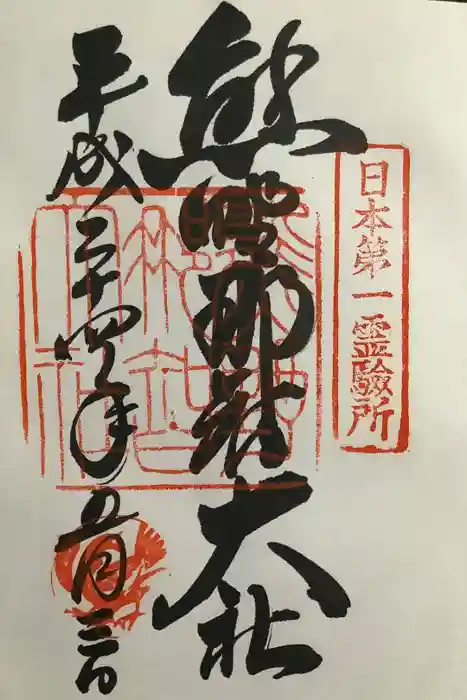 日本第一霊驗所
熊野那智大社
平成二十四年五月三日